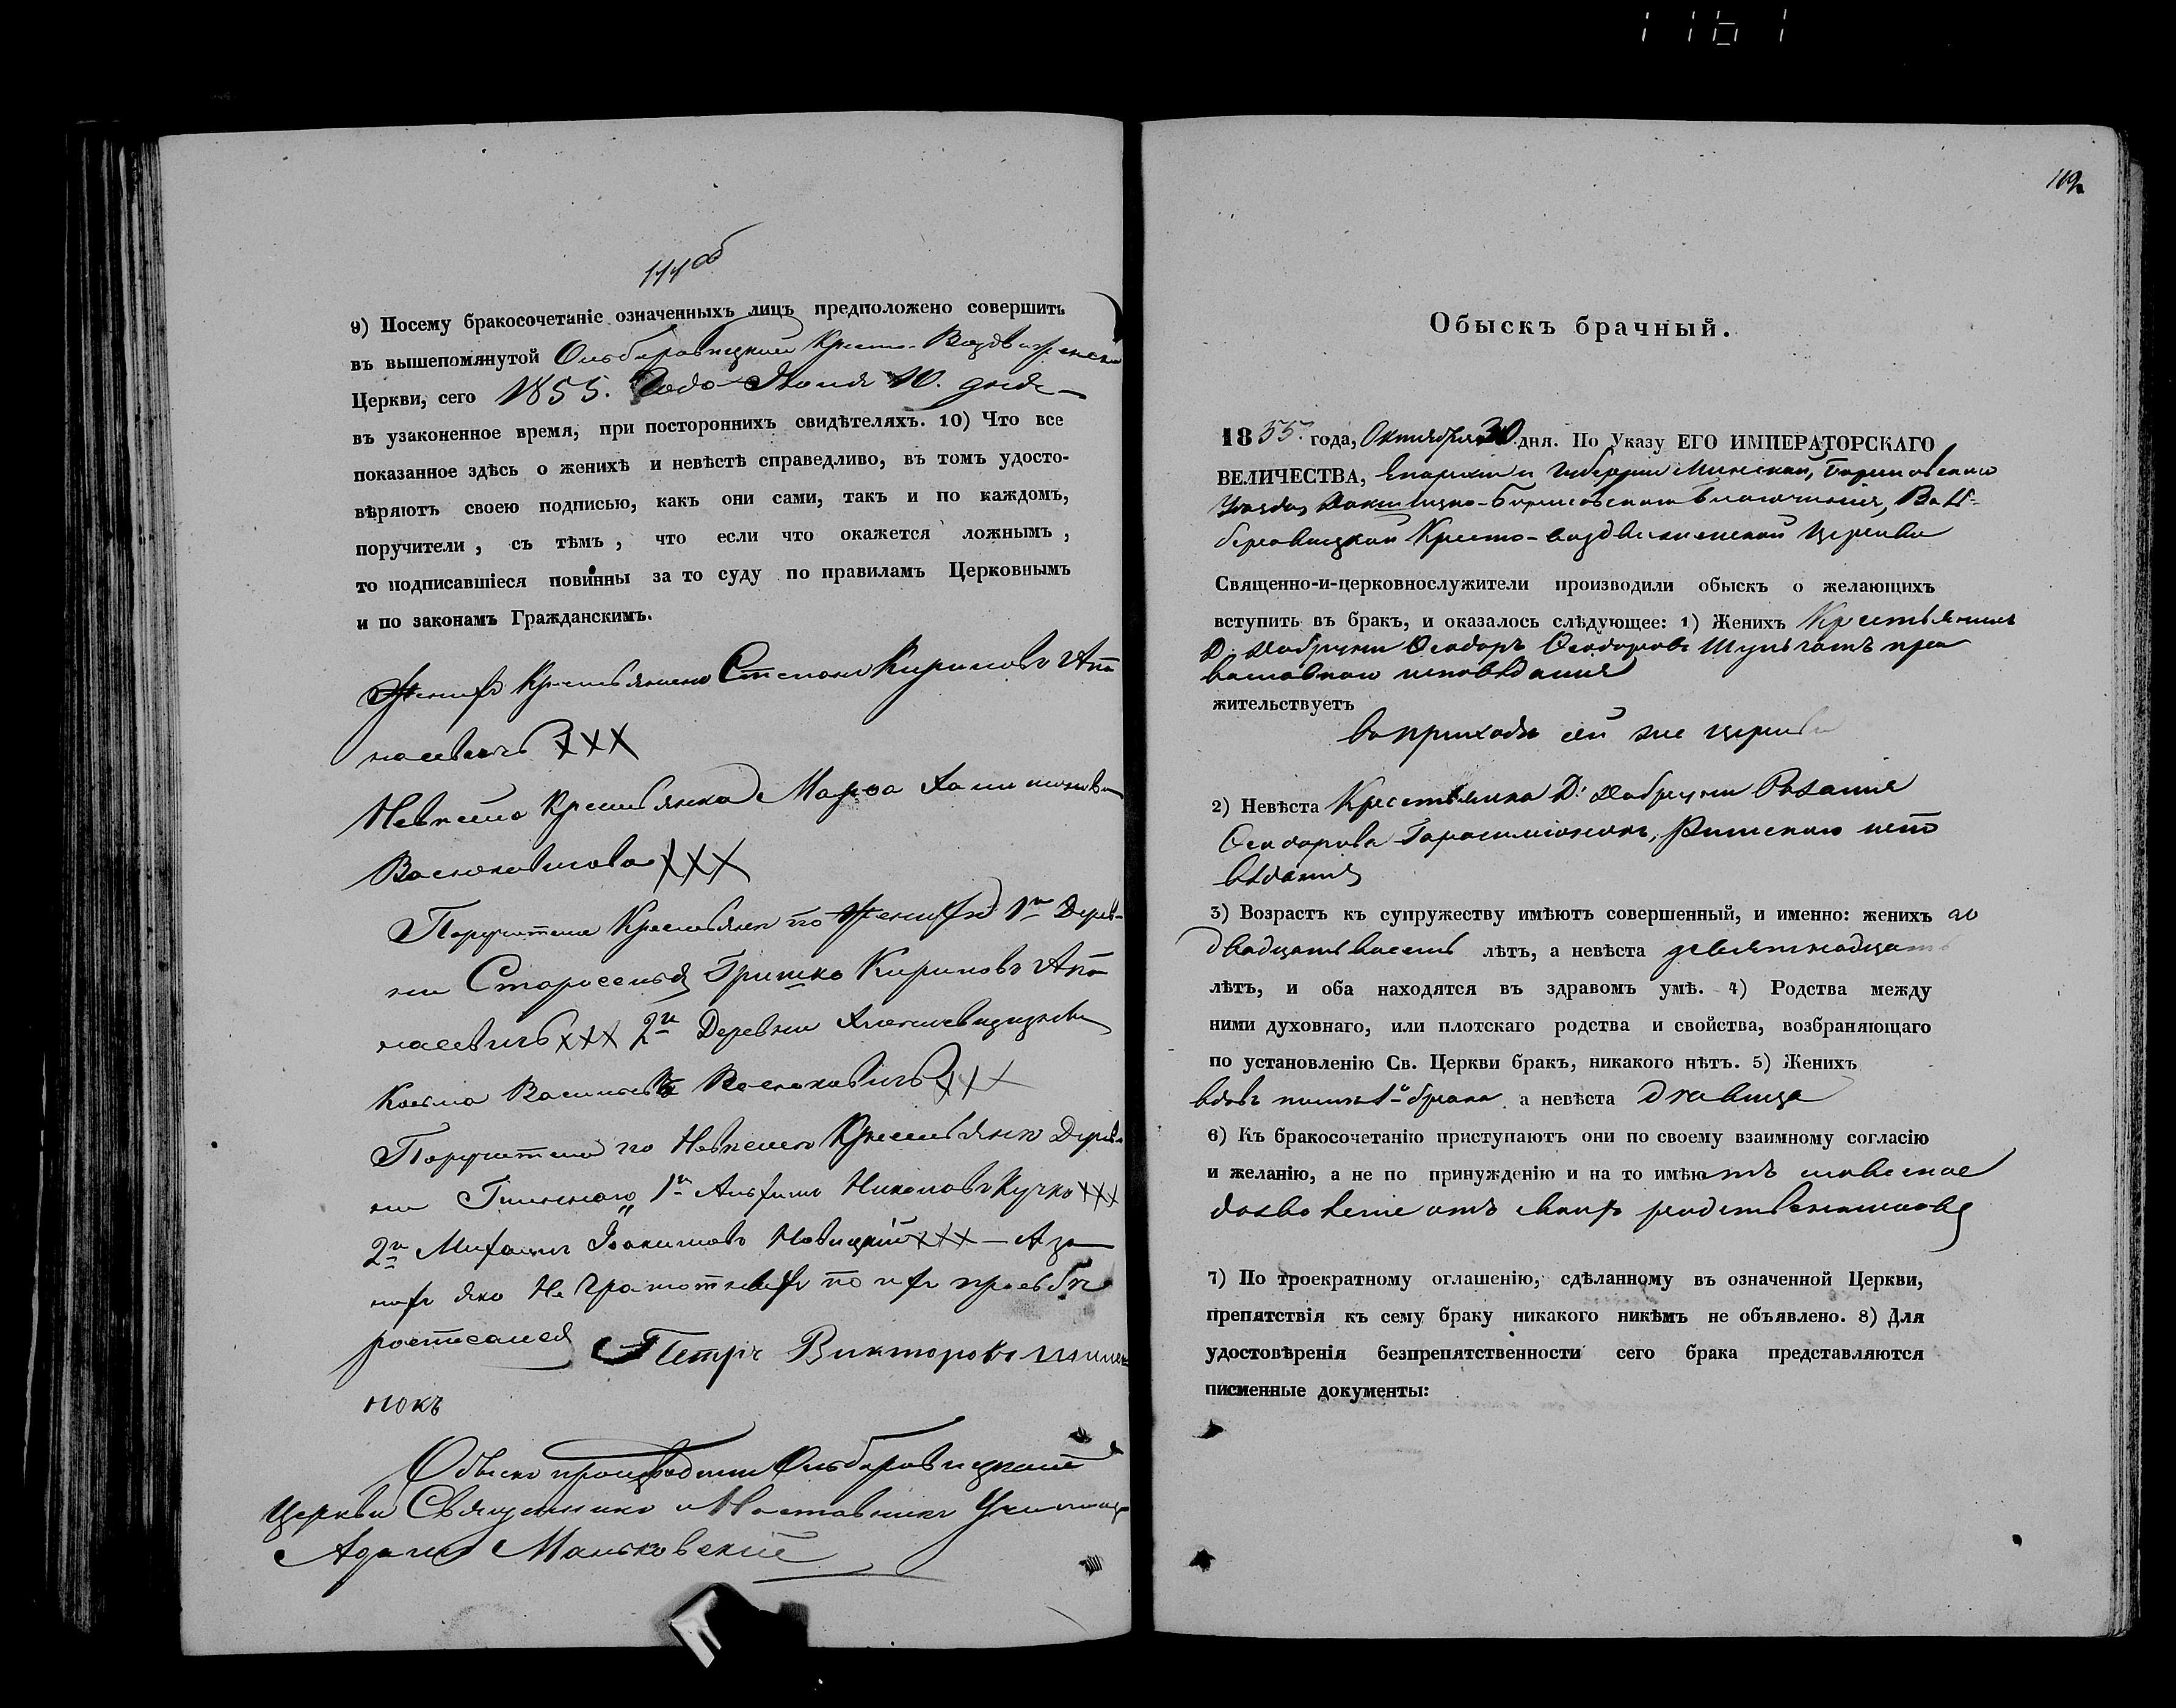 9) Посему бракосочетаніе означенныхъ лицъ предположено совершить
въ вышепомянутой Ольборовицкой Кресто-Воздвиженской
Церкви, сего 1855. Года Іюля 10. дня
въ узаконенное время, при постороннихъ свидѣтеляхъ. 10) Что все
показанное здѣсь о женихѣ и невѣстѣ справедливо, въ томъ удосто-
вѣряютъ своею подписью, какъ они сами, такъ и по каждомъ,
поручители, съ тѣмъ, что если что окажется ложнымъ,
то подписавшіеся повинны за то суду по правиламъ Церковнымъ
и по законамъ Гражданскимъ.
Женихъ Крестьянинъ Степанъ Кириловъ Апа
насевичъ XXX
Невѣста Крестьянка Марѳа
XXX
Поручители Крестьяне по Женихѣ 1й Дерев-
ни Староселья Гришко Кириловъ Апа
насевичъ XXX 2й Деревни
Косма Васильевъ XXX
Поручители по Невѣстѣ Крестьяне Дерев
ни 1й Николаевъ Кучко XXX
2й Михаилъ Іоакимовъ Новицкій XXX — А за
нихъ яко Неграмотныхъ по ихъ прозьбѣ
росписался Петръ Викторовъ
нокъ
Обыскъ производили Ольборовицкой
Церкви Священникъ и Наставникъ Училища
Адамъ Маньковскій
Обыскъ брачный.
1855. года, Октября 30 дня. По Указу ЕГО ИМПЕРАТОРСКАГО
ВЕЛИЧЕСТВА, Епархіи и Губерніи Минской, Борисовскаго
Уѣзда, Докшицко-Борисовскаго Благочинія,
Кресто-воздвиженской Церкви
Священно-и-церковнослужители производили обыскъ о желающихъ
вступить въ бракъ, и оказалось слѣдующее: 1) Женихъ Крестьянинъ
Д. Ѳеодоръ Ѳеодоровъ пра
вославнаго исповѣданія
жительствуетъ
въ приходѣ сей же церкви
2) Невѣста Крестьянка Д.
Ѳеодорова Римскаго испо
вѣданія
3) Возрастъ къ супружеству имѣютъ совершенный, и именно: женихъ
двадцать восемь лѣтъ, а невѣста девятнадцать
лѣтъ, и оба находятся въ здравомъ умѣ. 4) Родства между
ними духовнаго, или плотскаго родства и свойства, возбраняющаго
по установленію Св. Церкви бракъ, никакого нѣтъ. 5) Женихъ
вдовъ 1го брака а невѣста дѣвица
6) Къ бракосочетанію приступаютъ они по своему взаимному согласію
и желанію, а не по принужденію и на то имѣютъ словесное
дозволеніе отъ своихъ родственниковъ
7) По троекратному оглашенію, сдѣланному въ означенной Церкви,
препятствія къ сему браку никакого никѣмъ не объявлено. 8) Для
удостовѣренія безпрепятственности сего брака представляются
писменные документы: